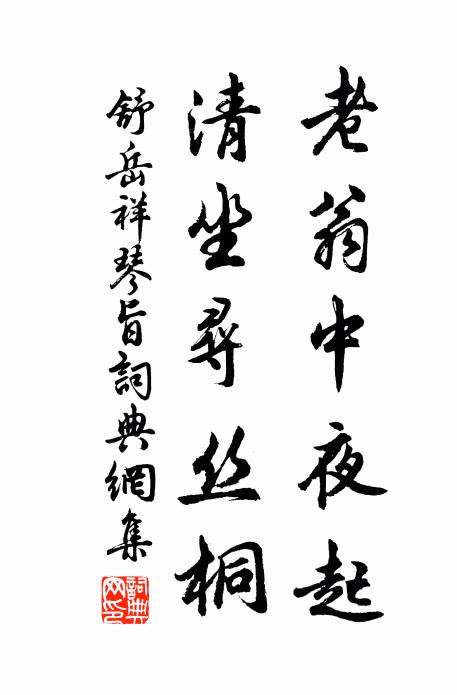 老翁中夜起
清坐尋丝桐
舒岳祥琴旨詞典網集
詞典網印